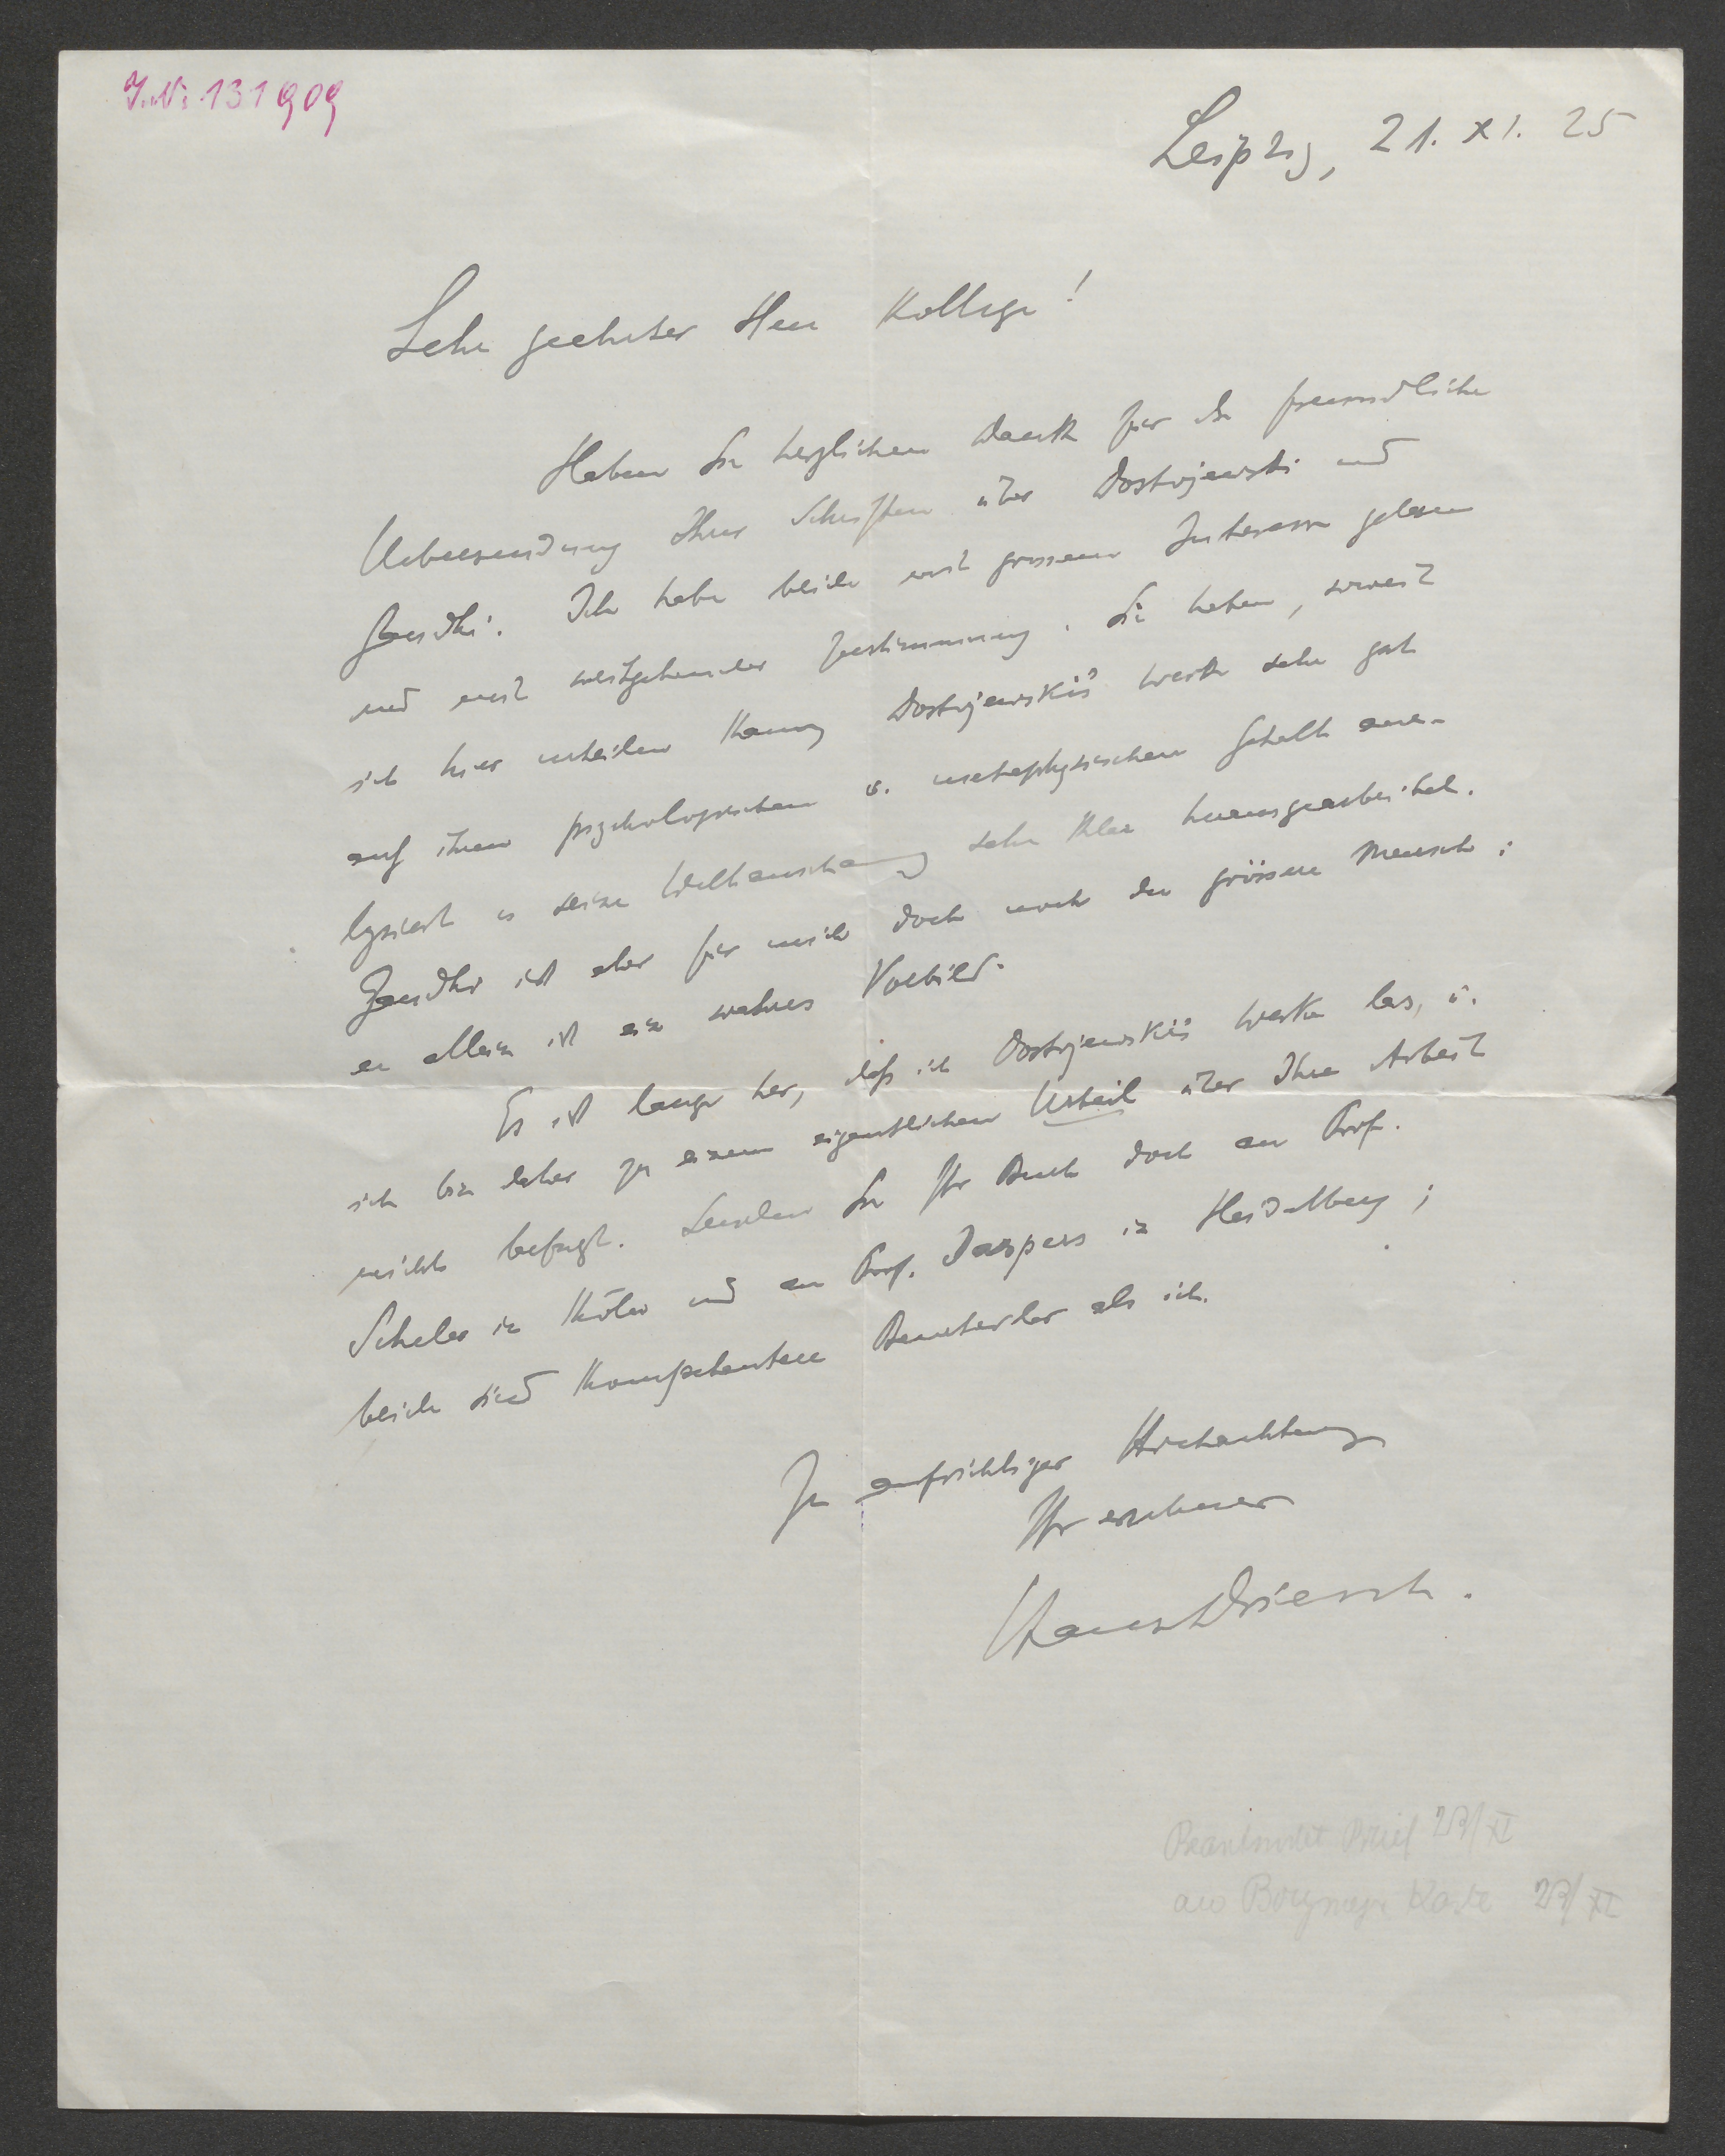 I.N. 131909
Leipzig, 21. XI. 25
Sehr geehrter Herr Kollege!
Haben Sie herzlichen Dank für die freundliche
Uebersendung Ihrer Schriften über Dostojewski und
Gandhi. Ich habe beide mit grossem Interesse gelesen
und mit weitgehender Zustimmung. Sie haben, soweit
ich hier urteilen kann, Dostojewskis Werk sehr gut
auf ihren psychologischen u. metaphysischen Gehalt ana-
lysiert u seine Weltanschauung sehr klar herausgearbeitet.
Gandhi ist aber für mich doch noch der grössere Mensch;
er allein ist ein wahres Vorbild.
Es ist lange her, dass ich Dostojewskis Werke las, u.
ich bin daher zu einem eigentlichen Urteil über Ihre Arbeit
nicht befugt. Senden Sie Ihr Buch doch an Prof.
Scheler in Köln und an Prof. Jaspers in Heidelberg;
beide sind kompetentere Beurteiler als ich.
In aufrichtiger Hochachtung
Ihr ergebener
Hans Driesch.
Beantwortet Brief 23/XI
Karte 23/XI